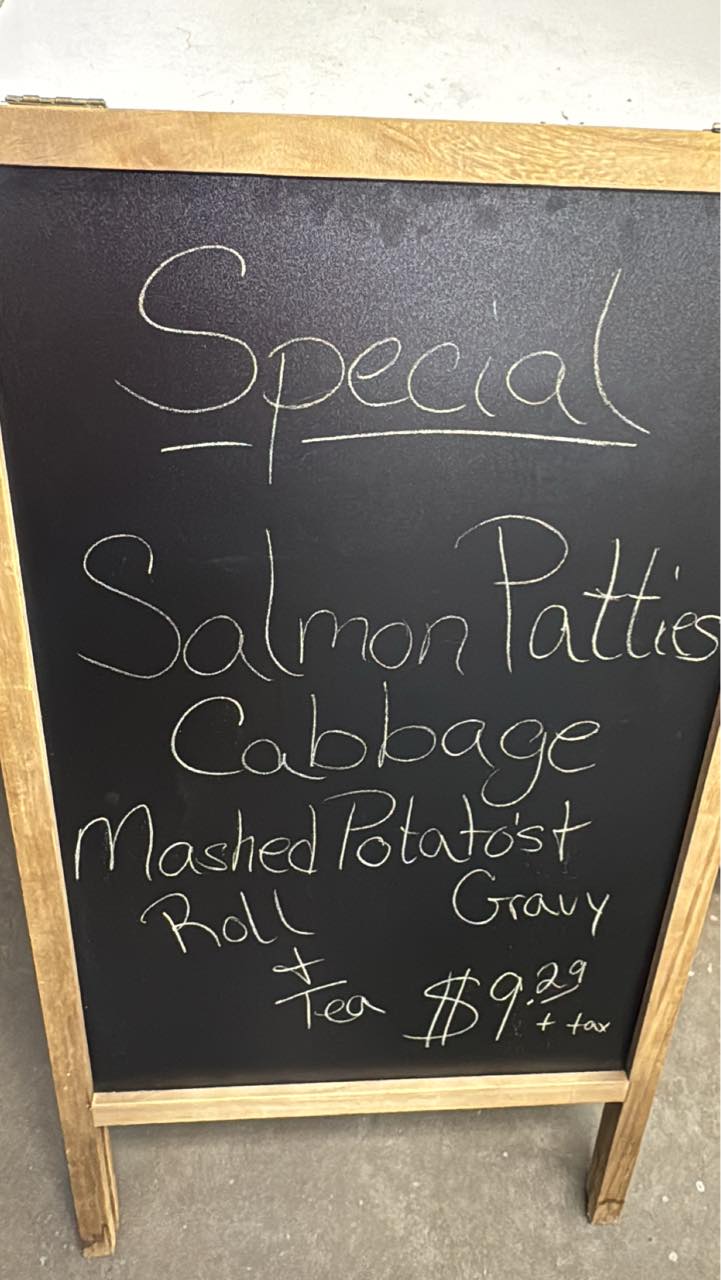 Special
Salmon Patties
Cabbage
Mashed Potato's +
Gravy
Roll
+
Tea
$9.29
+ tax